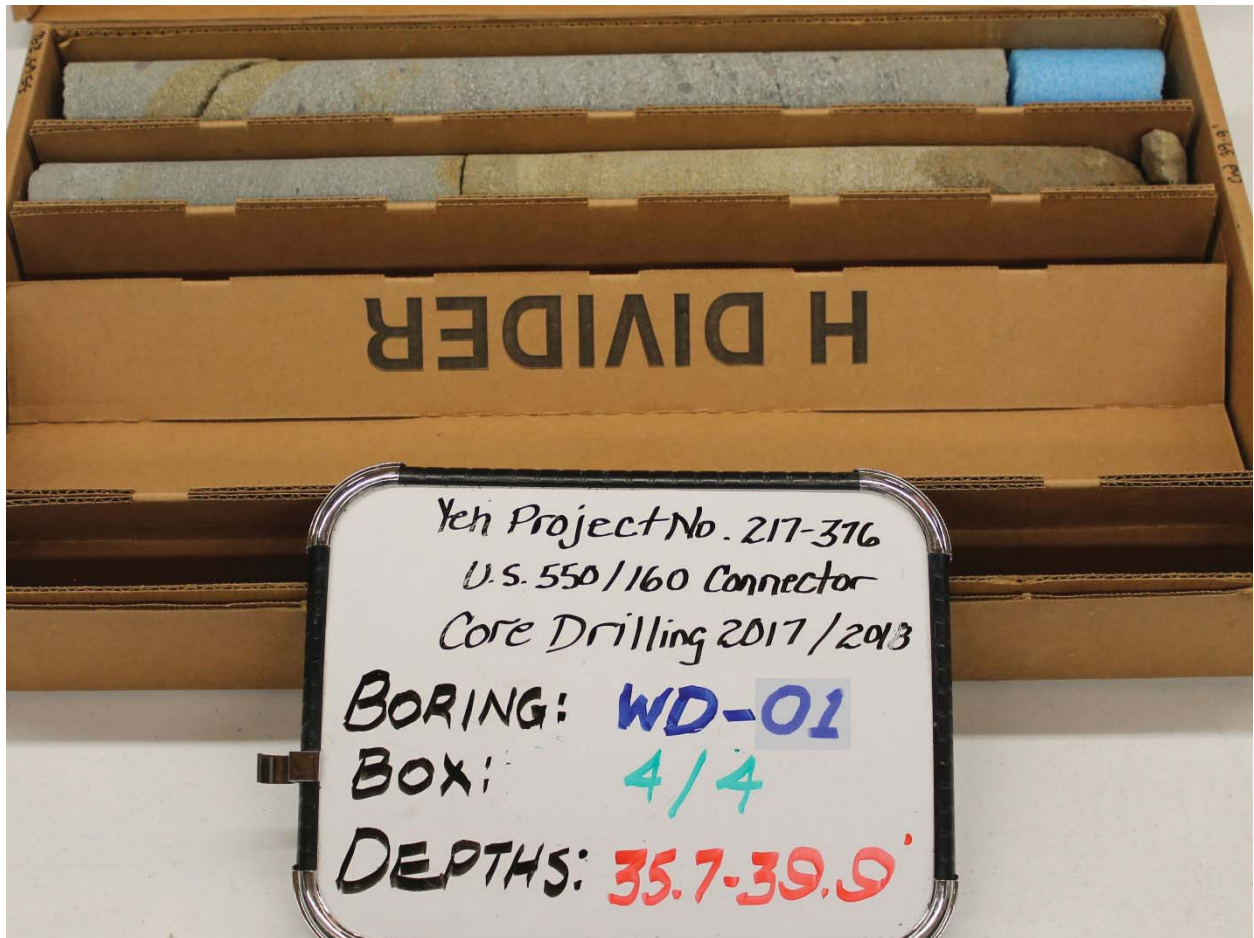 End 39.9'
H DIVIDER
Yeh Project No. 217-376
U.S. 550/160 Connector
Core Drilling 2017/2018
BORING: WD-01
BOX: 4/4
DEPTHS: 35.7-39.9'